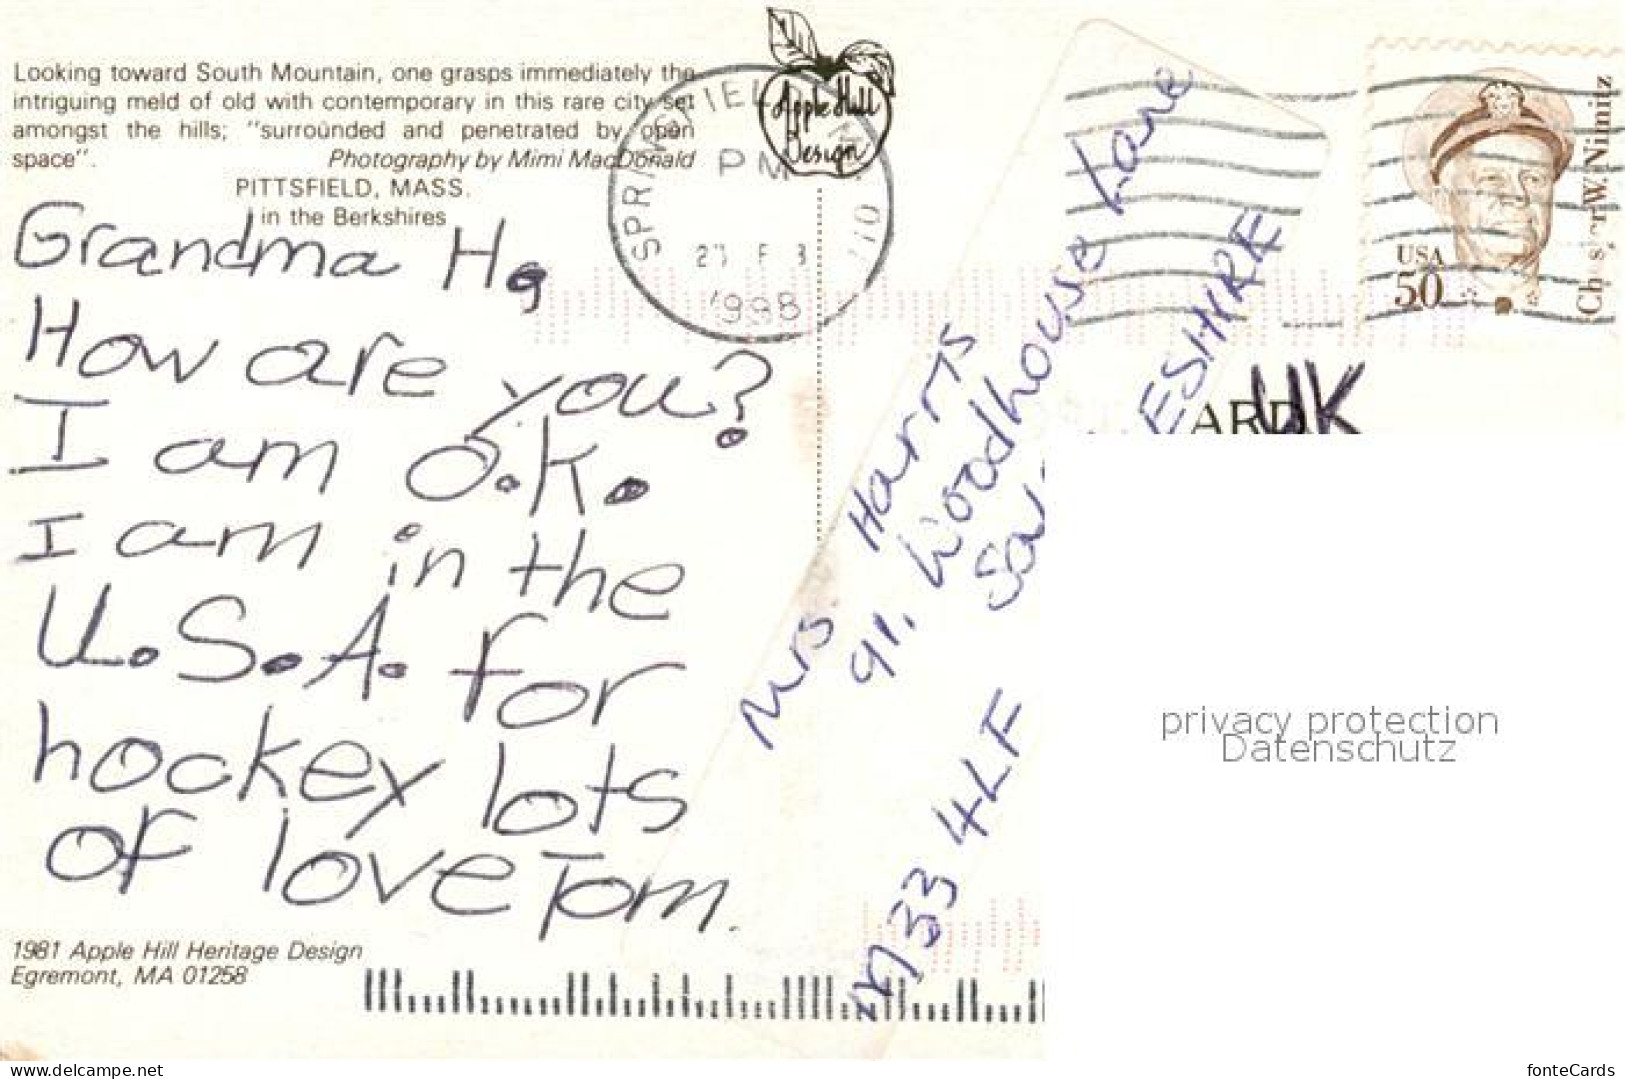 Looking toward South Mountain, one grasps immediately the
intriguing meld of old with contemporary in this rare city set
amongst the hills; "surrounded and penetrated by open
space".
Photography by Mimi MacDonald
PITTSFIELD, MASS.
in the Berkshires
Apple Hill
Design
PM
1998
USA
50
Grandma H,
How are you?
I am O.K.
I am in the
U.S.A. for
hockey lots
of love Tom.
Mrs Harris
91, Woodhouse Lane
ESHIRE
M33 4LF
UK
1981 Apple Hill Heritage Design
Egremont, MA 01258
privacy protection
Datenschutz
akpool.de
fonteCards